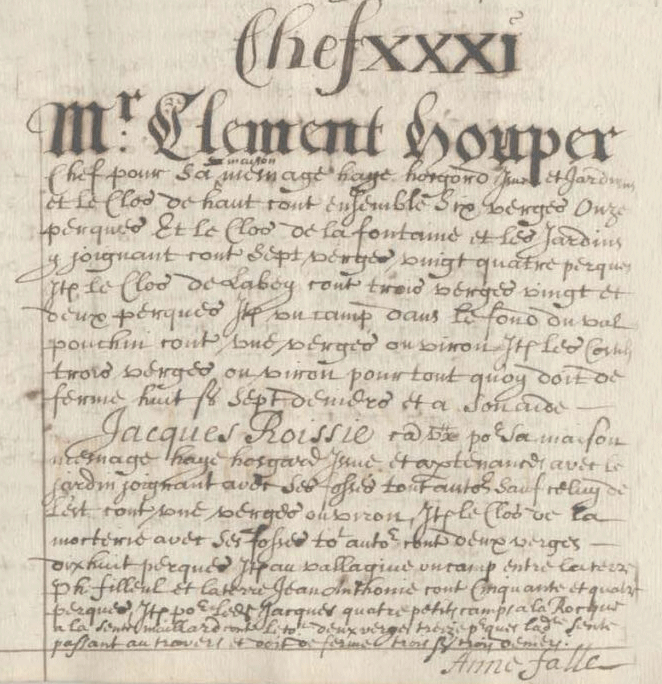 Chef XXXI
Mr. Clement Houper
Chef pour Sa maison menage haye hoigard Jssue et Jardins
et le Clos de haut cont ensemble Six verges Onze
perques Et le Clos de la fontaine et les Jardins
y joignant cont Sept verges vingt quatre perques
Jtp le Clos de Labey cont trois verges vingt et
deux perques Jtp vn camp dans le fond du val
pouchin cont vne verges ou viron Jtp les
trois verges ou viron pour tout quoy doit de
ferme huit ss Sept deniers et a Son aide
Jacques Roissie po.r Sa maison
menage haye hoigard Jssue et avec le
Jardin joignant avec Ses fosses tout auto.r Sauf celuy de
Lest cont vne verges ou viron, Jtp le Clos de la
motterie avec Ses fosses to.t auto.r cont deux verges
dixhuit perques Jtp au vallagine vn camp entre la terre
Ph: filleul et la terre Jean Anthoine cont Cinquante et quatre
perques, Jtp po.r Jacques quatre petits camps a la Rocque
a la Sente maillard cont le to.t deux verges treize p.ques lad.e Sente
passant au travers et doit de ferme trois ss trois deniers.
Anne falle